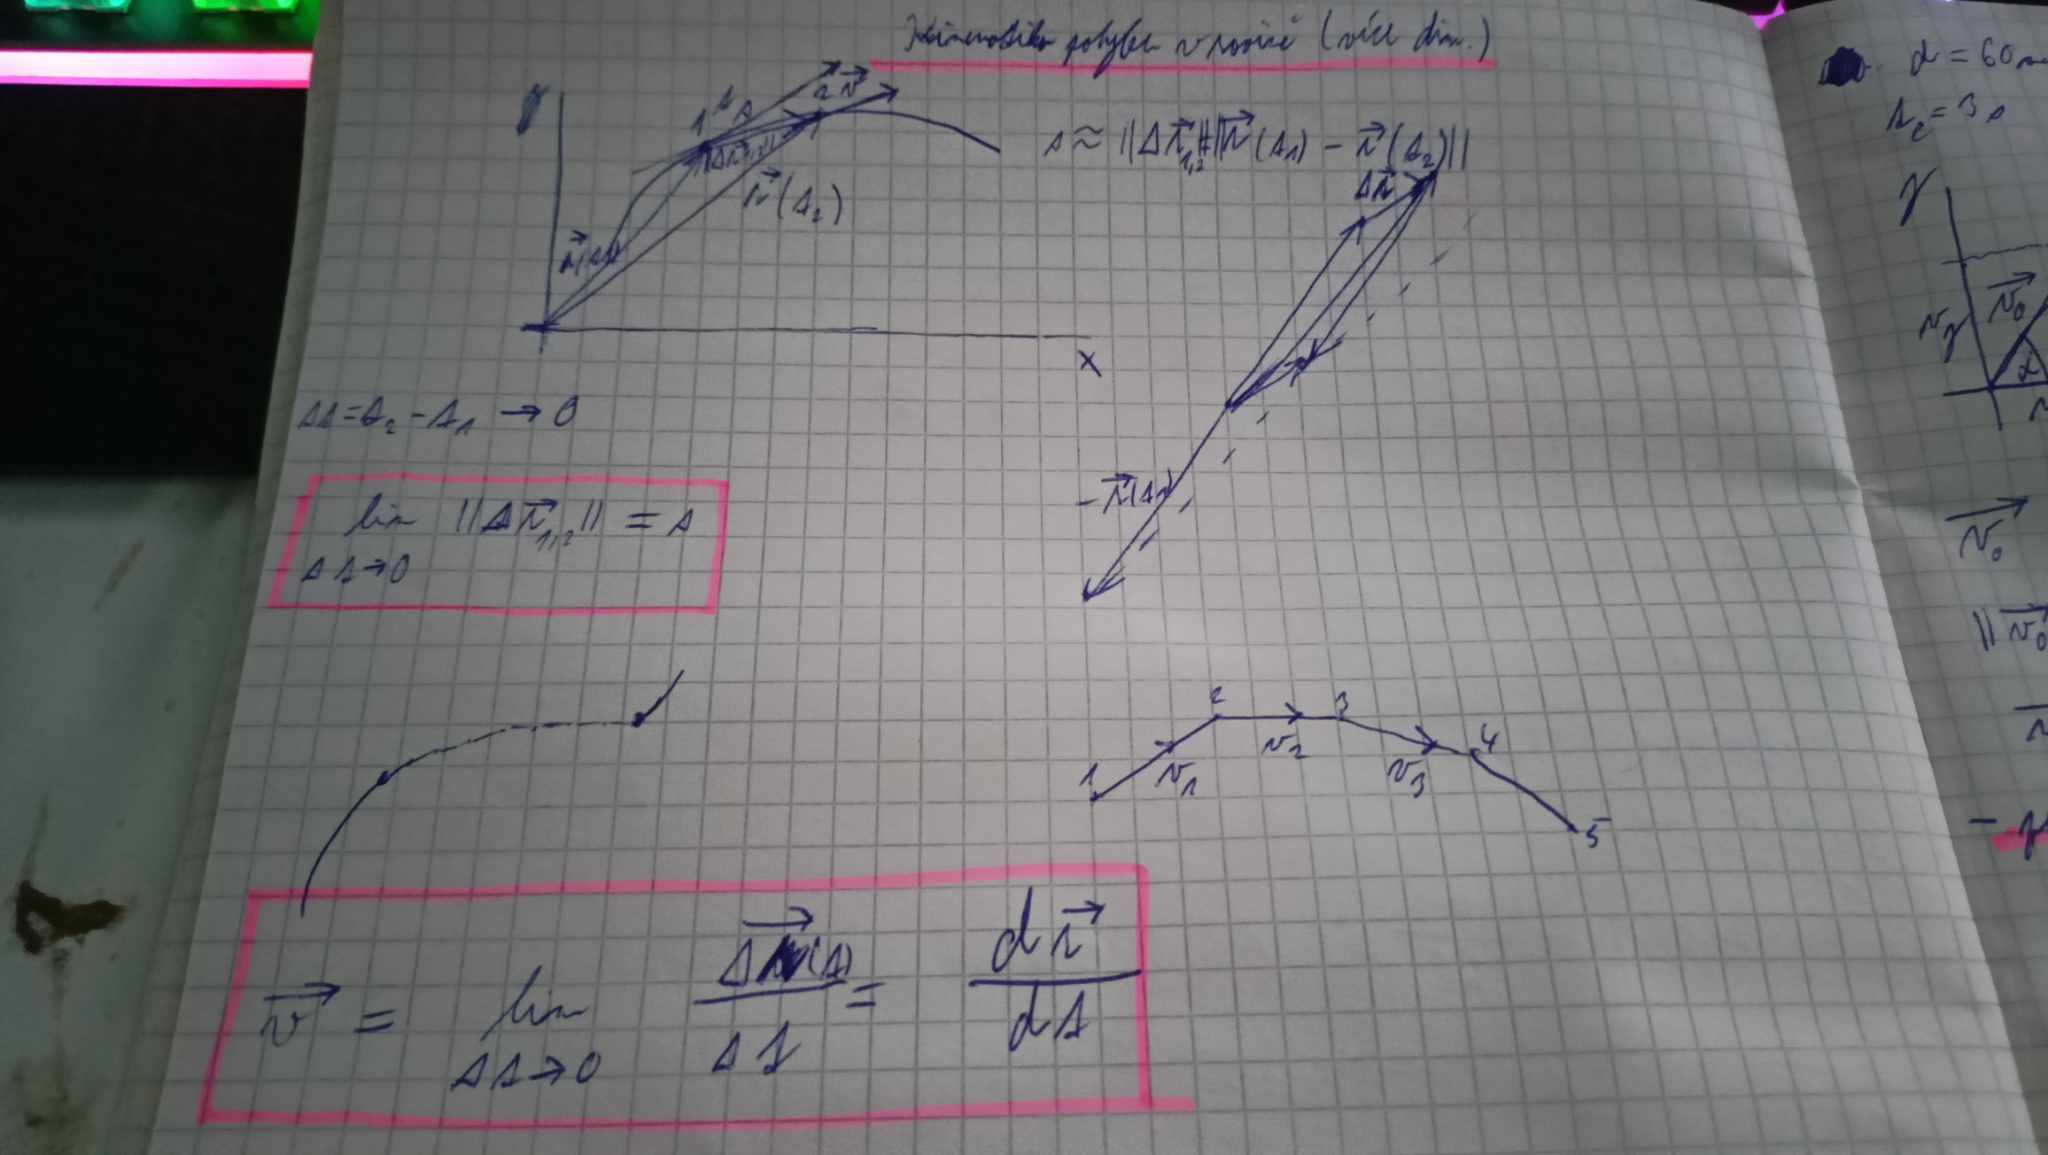 Kinematika pohybu v rovině (více dim.)
y
1 s 2 v⃗
||Δr⃗₁,₂||
r⃗(t₁)
r⃗(t₂)
x
s ≈ ||Δr⃗₁,₂|| = ||r⃗(t₁) - r⃗(t₂)||
Δr⃗
-r⃗(t₁)
Δt = t₂ - t₁ → 0
lim ||Δr⃗₁,₂|| = s
Δt → 0
1 2 3 4 5
v₁ v₂ v₃
v⃗ = lim Δr⃗(t) / Δt = dr⃗ / dt
Δt → 0
d = 60
t_c = 3 s
y
v⃗₀
v_y
α
v⃗₀
||v⃗₀